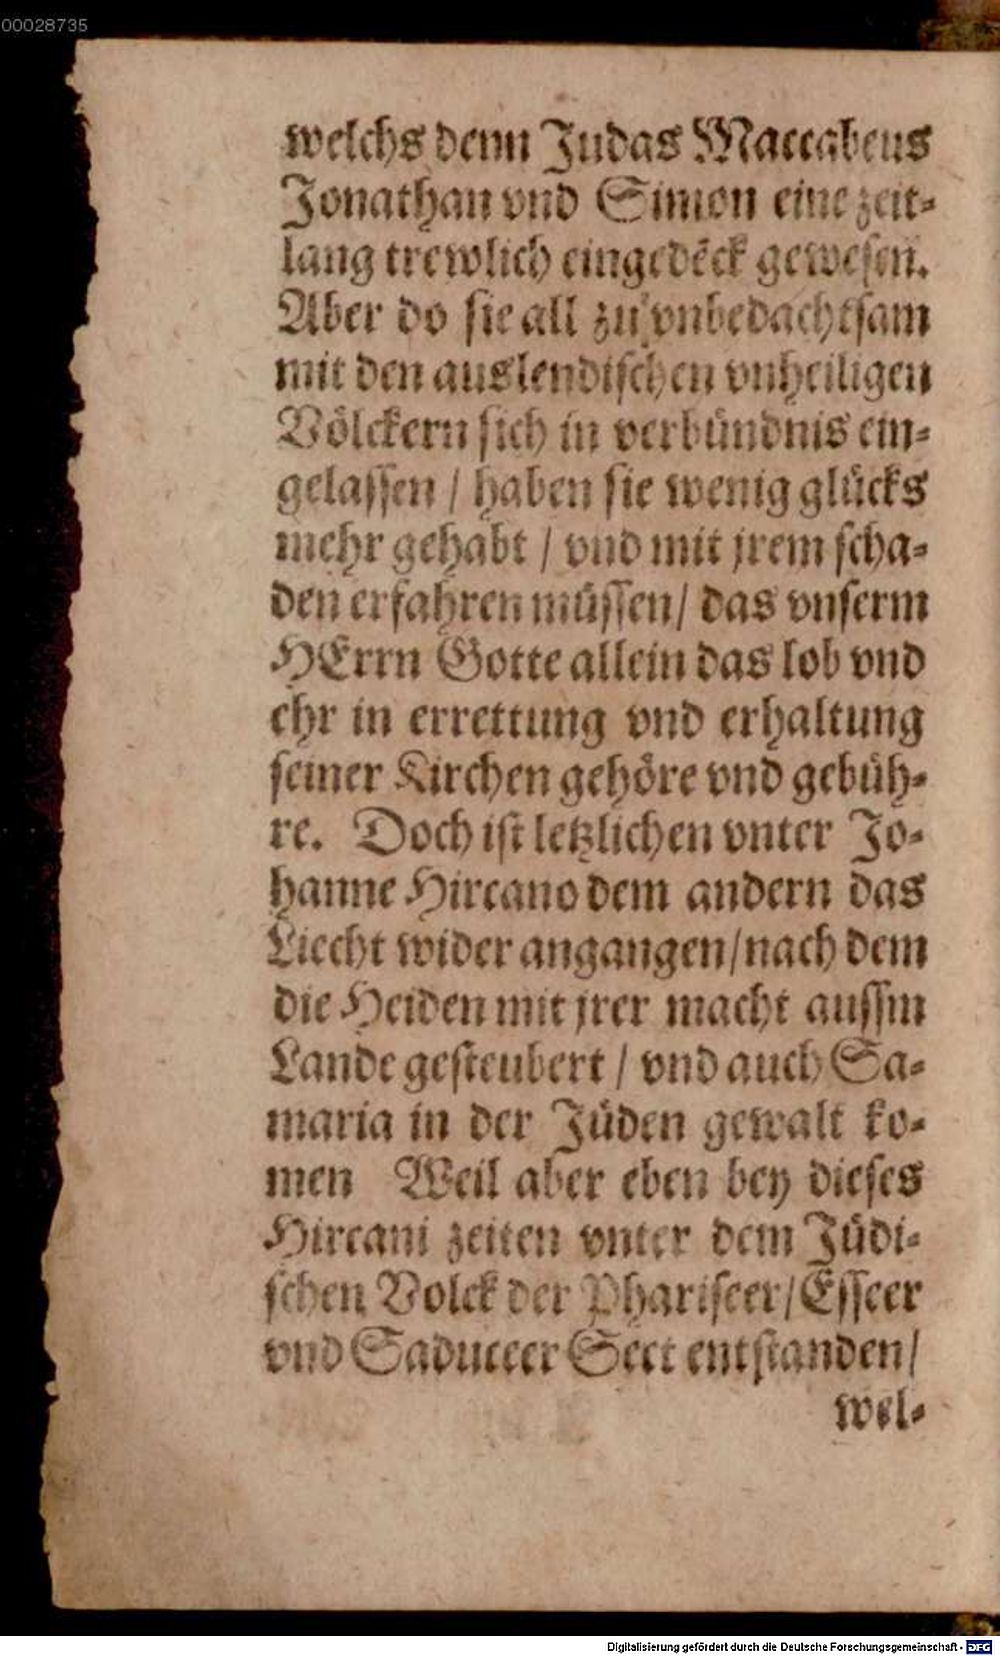 00028735
welchs denn Judas Maccabeus
Jonathan vnd Simon eine zeit-
lang trewlich eingedẽck gewesen.
Aber do sie all zu vnbedachtsam
mit den auslendischen vnheiligen
Völckern sich in verbündnis ein-
gelassen / haben sie wenig glücks
mehr gehabt / vnd mit jrem scha-
den erfahren müssen / das vnserm
HErrn Gotte allein das lob vnd
ehr in errettung vnd erhaltung
seiner Kirchen gehöre vnd gebüh-
re. Doch ist letzlichen vnter Jo-
hanne Hircano dem andern das
Liecht wider angangen / nach dem
die Heiden mit jrer macht aussm
Lande gesteubert / vnd auch Sa-
maria in der Jüden gewalt ko-
men Weil aber eben bey dieses
Hircani zeiten vnter dem Jüdi-
schen Volck der Phariseer / Esseer
vnd Saduceer Sect entstanden /
wel-
Digitalisierung gefördert durch die Deutsche Forschungsgemeinschaft - DFG